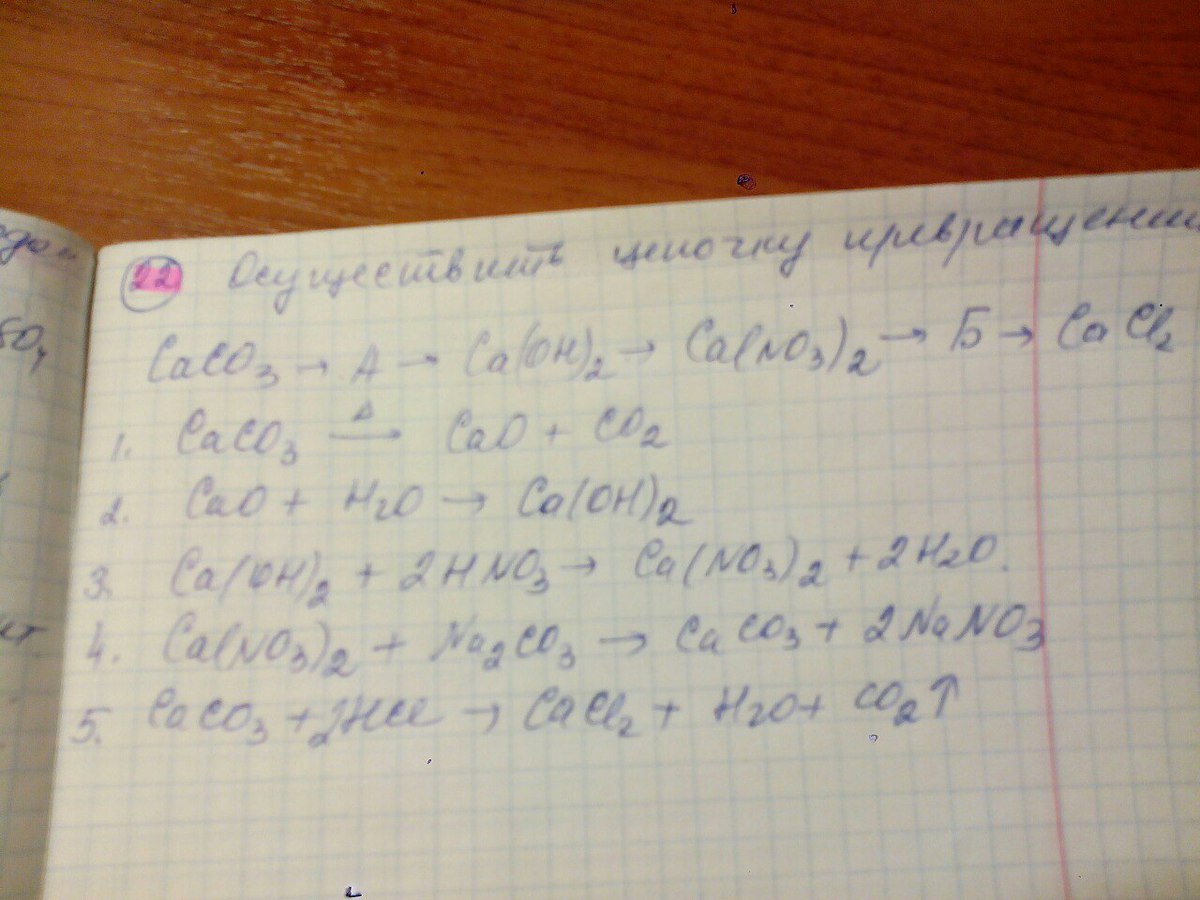 22 Осуществить цепочку превращений
CaCO₃ → А → Ca(OH)₂ → Ca(NO₃)₂ → Б → CaCl₂
1. CaCO₃ →(Δ) CaO + CO₂
2. CaO + H₂O → Ca(OH)₂
3. Ca(OH)₂ + 2HNO₃ → Ca(NO₃)₂ + 2H₂O.
4. Ca(NO₃)₂ + Na₂CO₃ → CaCO₃ + 2NaNO₃
5. CaCO₃ + 2HCl → CaCl₂ + H₂O + CO₂↑